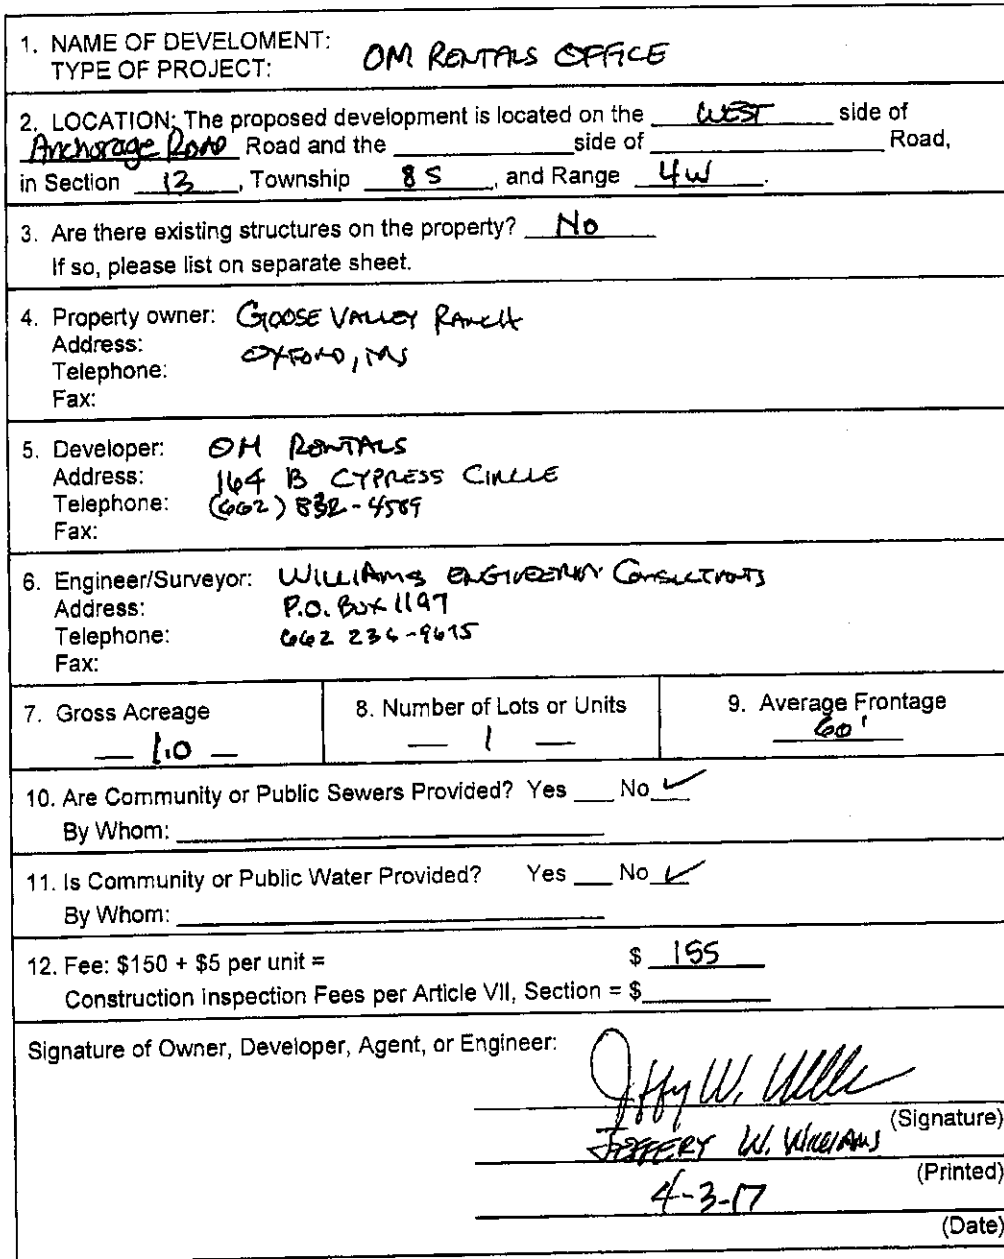 1. NAME OF DEVELOMENT:
TYPE OF PROJECT: OM RENTALS OFFICE
2. LOCATION: The proposed development is located on the WEST side of
Anchorage Road Road and the ____ side of ____ Road,
in Section 13, Township 8 S, and Range 4W.
3. Are there existing structures on the property? No
If so, please list on separate sheet.
4. Property owner: GOOSE VALLEY RANCH
Address: OXFORD, MS
Telephone:
Fax:
5. Developer: OM RENTALS
Address: 164 B CYPRESS CIRCLE
Telephone: (662) 832-4589
Fax:
6. Engineer/Surveyor: WILLIAMS ENGINEERING CONSULTANTS
Address: P.O. BOX 1197
Telephone: 662 236-9675
Fax:
7. Gross Acreage
— 1.0 —
8. Number of Lots or Units
— 1 —
9. Average Frontage
60'
10. Are Community or Public Sewers Provided? Yes ___ No ✓
By Whom: ____
11. Is Community or Public Water Provided? Yes ___ No ✓
By Whom: ____
12. Fee: $150 + $5 per unit = $ 155
Construction Inspection Fees per Article VII, Section = $____
Signature of Owner, Developer, Agent, or Engineer:
(Signature)
JEFFERY W. WILLIAMS
(Printed)
4-3-17
(Date)